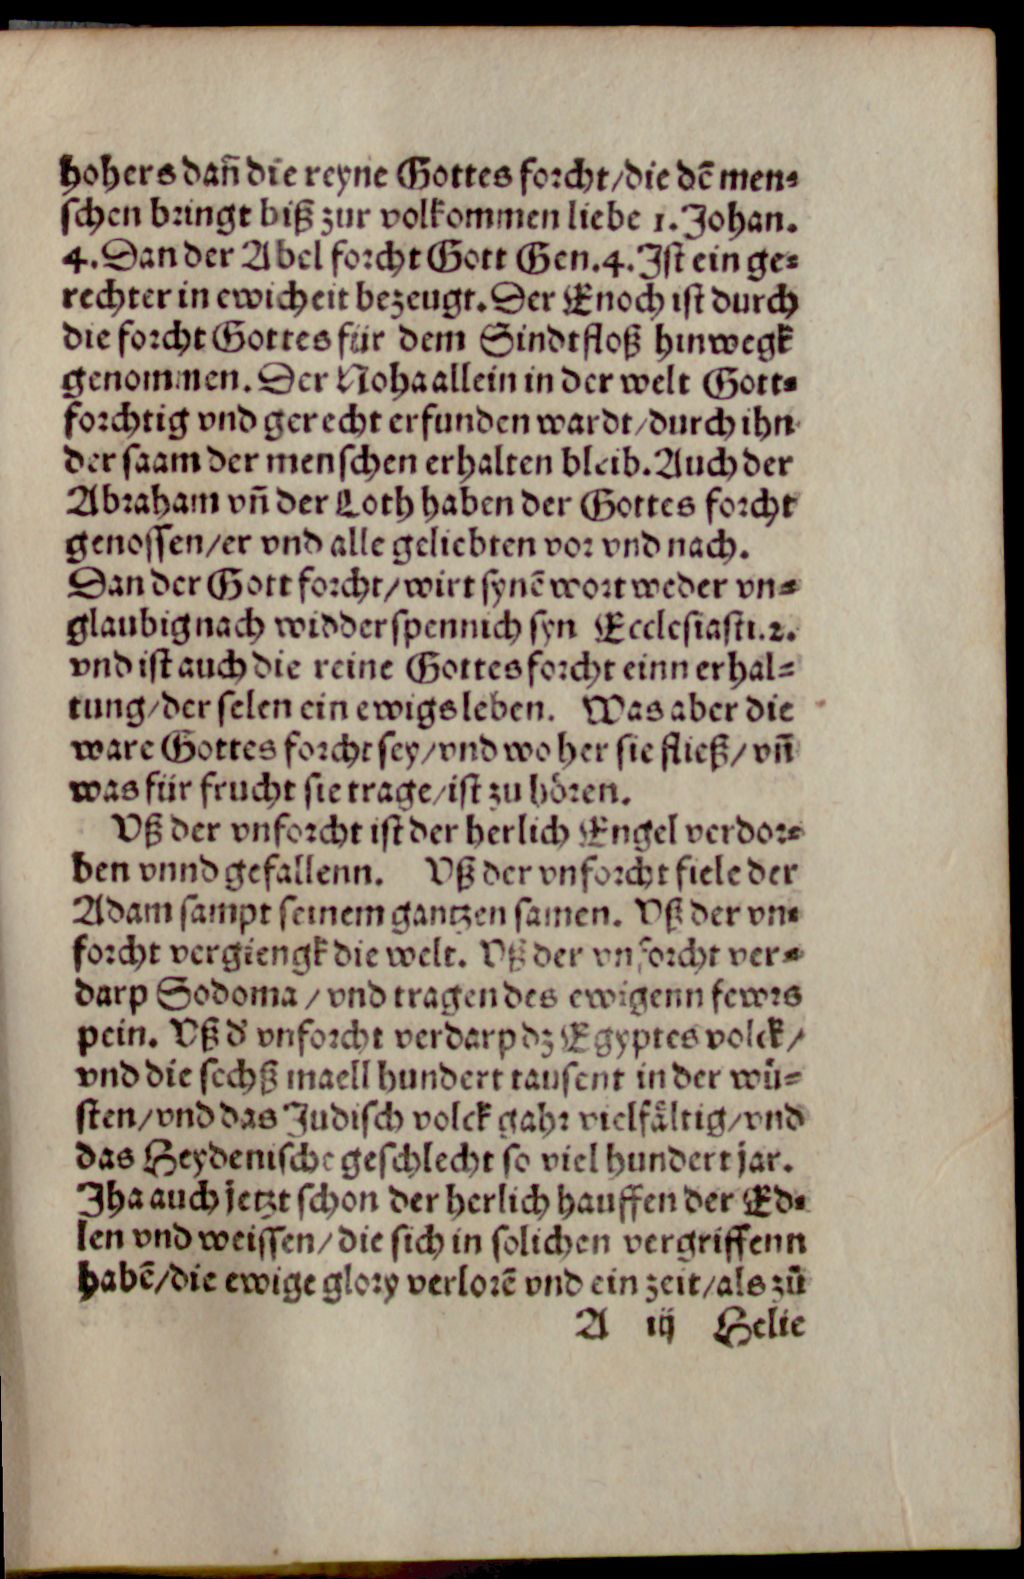 hohers dañ die reyne Gottes forcht/die dē men⸗
schen bringt biß zur volkommen liebe 1. Johan.
4. Dan der Abel forcht Gott Gen. 4. Ist ein ge⸗
rechter in ewicheit bezeugt. Der Enoch ist durch
die forcht Gottes für dem Sindtfloß hinwegk
genommen. Der Noha allein in der welt Gott⸗
forchtig vnd gerecht erfunden wardt/durch ihn
der saam der menschen erhalten bleib. Auch der
Abraham vñ der Loth haben der Gottes forcht
genossen/er vnd alle geliebten vor vnd nach.
Dan der Gott forcht/wirt synē wort weder vn⸗
glaubig nach widderspennich syn Ecclesiasti. 2.
vnd ist auch die reine Gottes forcht einn erhal⸗
tung/der selen ein ewigs leben. Was aber die
ware Gottes forcht sey/vnd wo her sie fließ/vñ
was für frucht sie trage/ist zu hören.
Vß der vnforcht ist der herlich Engel verdor⸗
ben vnnd gefallenn. Vß der vnforcht fiele der
Adam sampt seinem gantzen samen. Vß der vn⸗
forcht vergiengk die welt. Vß der vnforcht ver⸗
darp Sodoma/vnd tragen des ewigenn fewrs
pein. Vß d' vnforcht verdarp dz Egyptes volck/
vnd die sechß maell hundert tausent in der wü⸗
sten/vnd das Judisch volck gahr vielfältig/vnd
das Heydenische geschlecht so viel hundert jar.
Jha auch jetzt schon der herlich hauffen der Ed⸗
len vnd weissen/die sich in solichen vergriffenn
habē/die ewige glory verlorē vnd ein zeit/als zū
A iij Helie